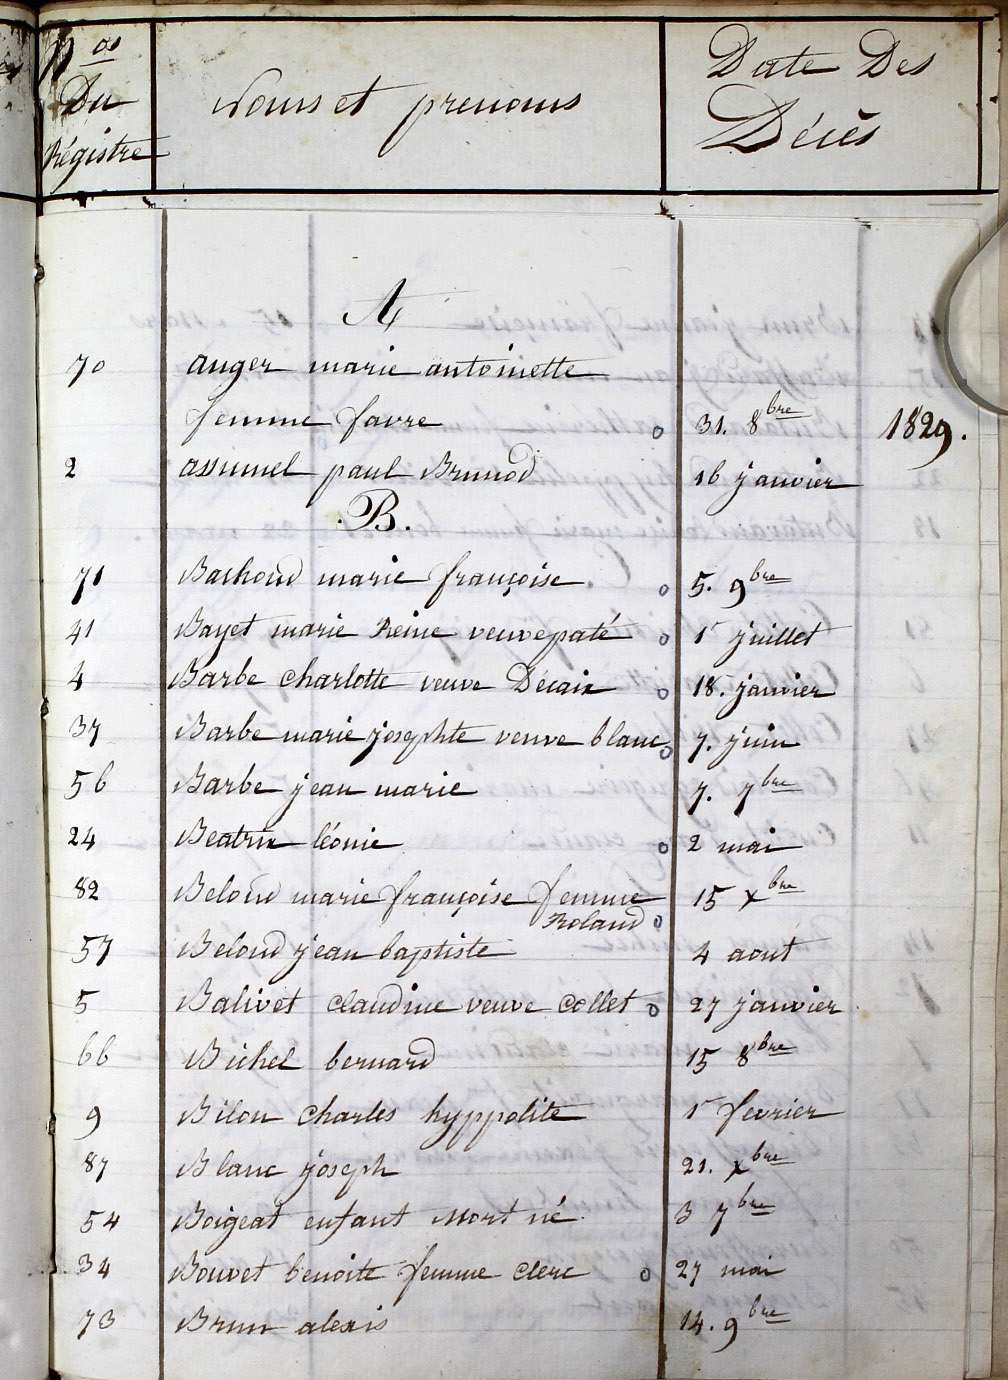 Nos Du Régistre
Noms et prenoms
Date Des Décès
A
70 anger marie antoinette
femme favre o 31. 8bre 1829.
2 assumel paul Brunod 16 janvier
.B.
71 Bachoud marie françoise o 5. 9bre
41 Bayet marie Reine veuve paté o 1r juillet
4 Barbe charlotte veuve Décaix o 18. janvier
37 Barbe marie josephte veuve blanc o 7. juin
56 Barbe jean marie 7. 7bre
24 Beatrix léonie o 2 mai
82 Beloud marie françoise femme 15 xbre
Roland o
57 Beloud jean baptiste 4 aout
5 Balivet claudine veuve collet o 27 janvier
66 Bichel bernard 15 8bre
9 Bilon charles hyppolite 1r fevrier
87 Blanc joseph 21. xbre
54 Boigeat enfant mort né 3 7bre
34 Bouvet benoite femme clerc o 27 mai
73 Brun alexis 14. 9bre